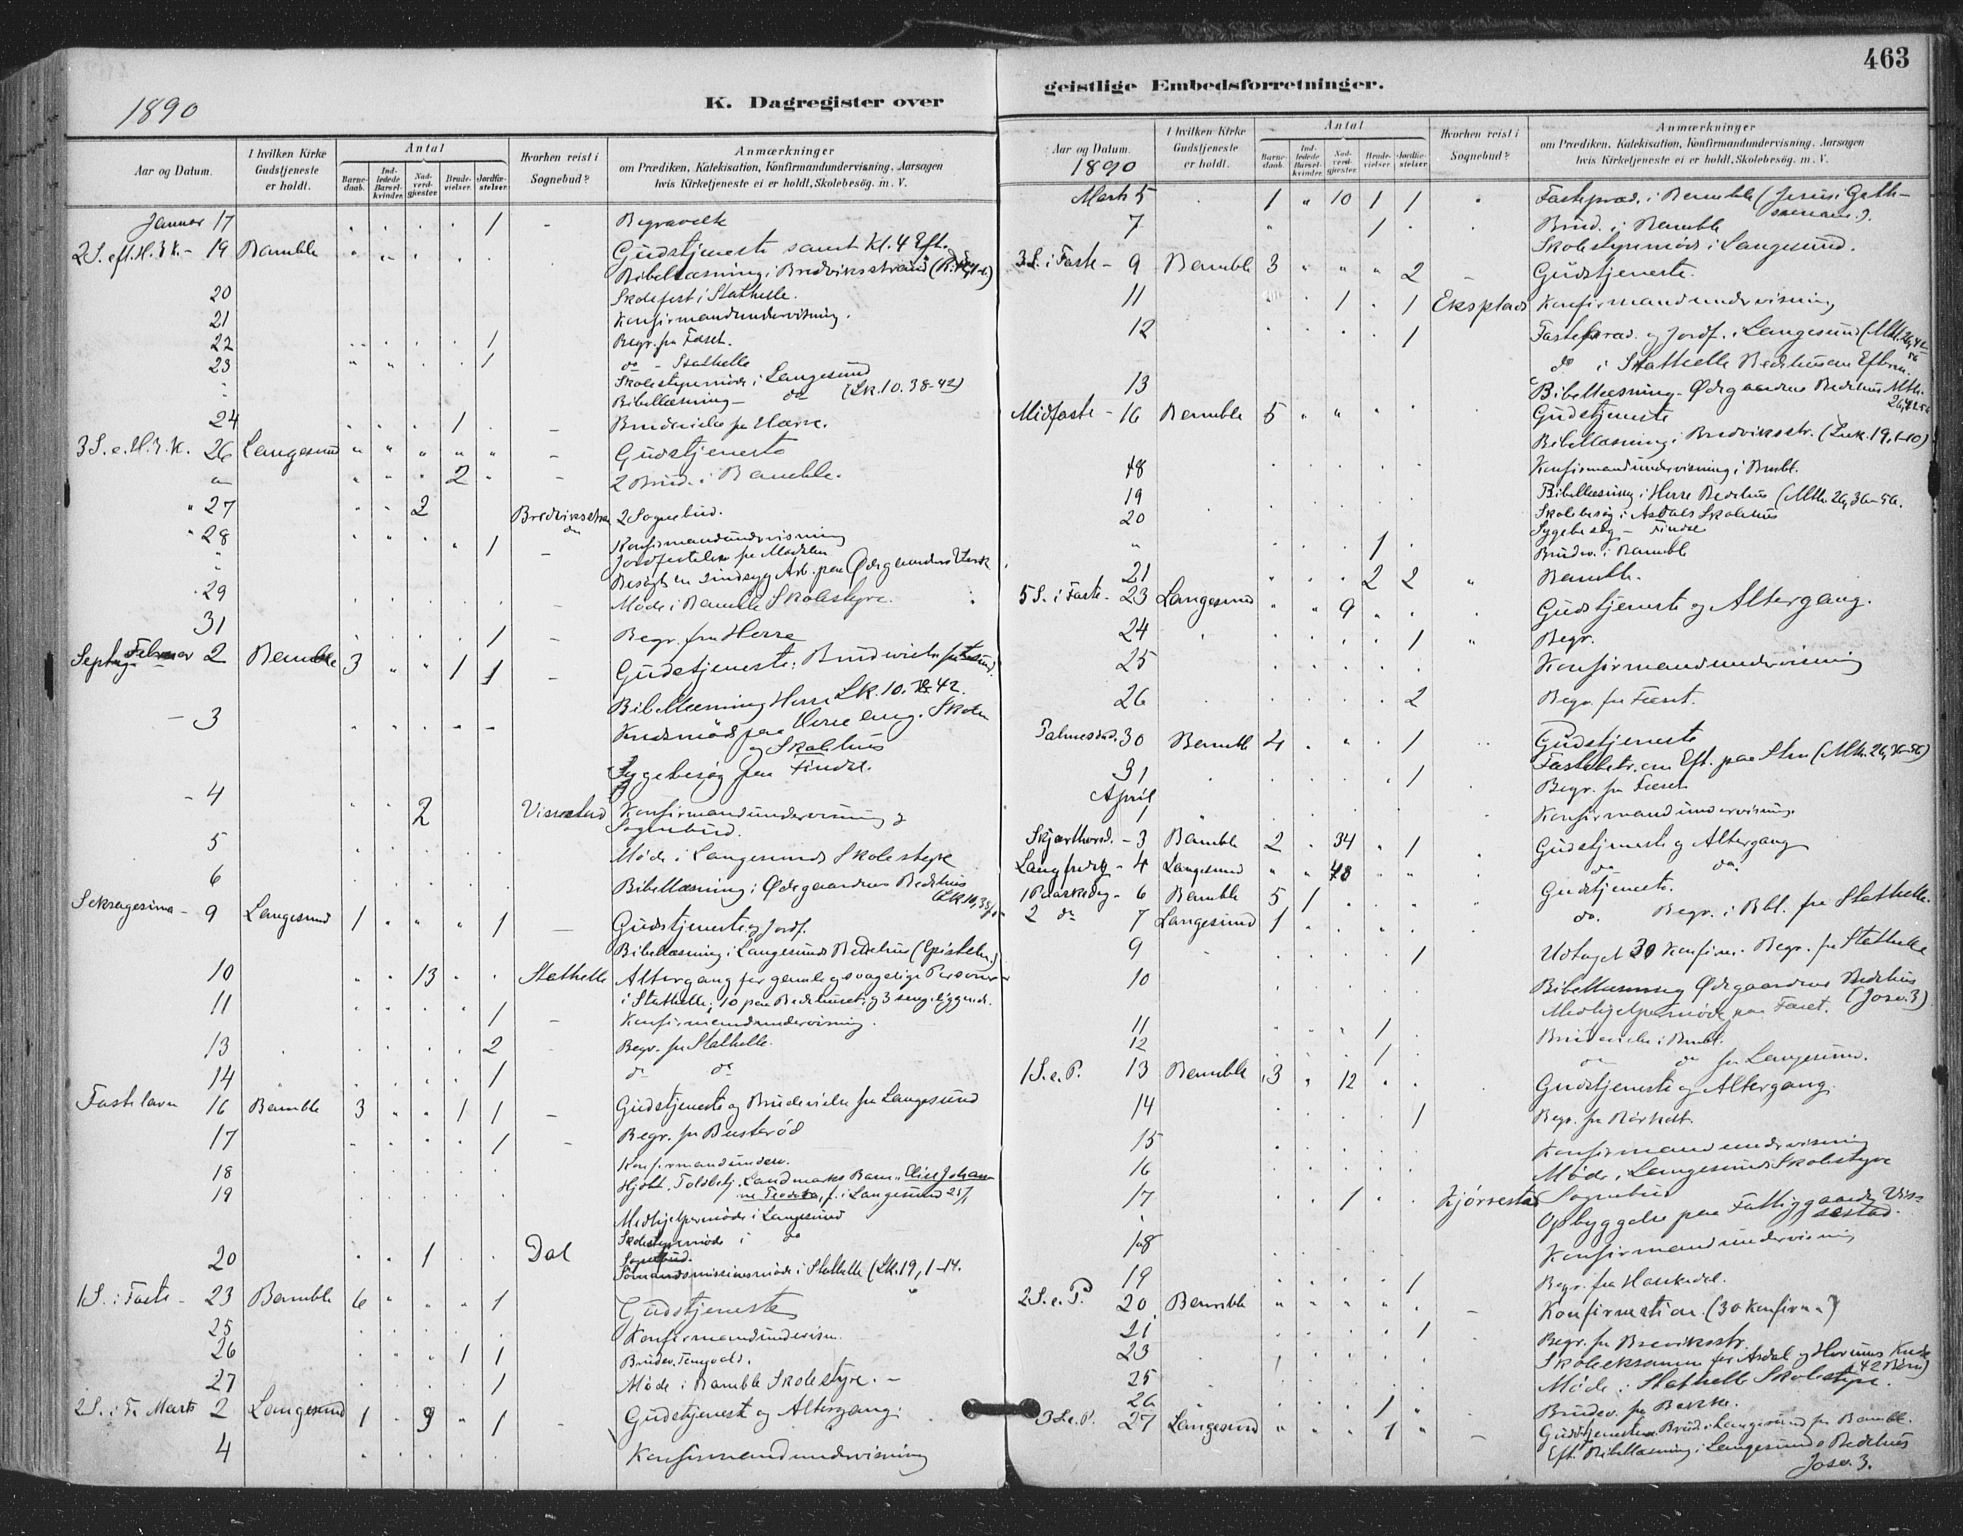 463
1890
K. Dagregister over
geistlige Embedsforretninger.
Aar og Datum.
I hvilken Kirke Gudstjeneste er holdt.
Antal
Barnedaab.
Indledede Barselkvinder.
Nadverdgjester.
Brudevielser.
Jordfæstelser.
Hvorhen reist i Sognebud?
Anmærkninger
om Prædiken, Katekisation, Konfirmandundervisning, Aarsagen
hvis Kirketjeneste ei er holdt, Skolebesøg, m. V.
Januar 17 1 Begravelse
2 S. eft. H. 3 K. - 19 Bamble Gudstjeneste samt Kl. 4 Eft.
Bibellæsning i Bredviksstrand
20 Skolefest i Stathelle.
21 Konfirmandundervisning.
22 1 Begr. fra Faset.
23 1 do - Stathelle
Skolestyremøde i Langesund
Bibellæsning - do (Lk. 10. 38-42)
24 1 Brudevielse fra Herre.
3 S. e. H. 3. K. 26 Langesund Gudstjeneste
2 2 Brud. i Bamble.
27 2 Bredviksstran 2 Sognebud.
do
28 1 Konfirmandundervisning
Jordfæstelse fra
Besøgt en sindssyg Arb. paa Ødegaardens Verk
29 Møde i Bamble Skolestyre.
31 1 Begr. fra Herre
Septuag Februar 2 Bamble 3 1 1 Gudstjeneste; Brudvielse fra
Bibellæsning Herre Lk. 10. 38-42.
3 Kredsmøde paa Herre ang. Skolen
og Skolehus
Sygebesøg paa Findal.
4 2 Vissestad Konfirmandundervisning &
Sognebud.
5 Møde i Langesunds Skolestyre
6 Bibellæsning i Ødegaardens Bedehus
Seksagesima - 9 Langesund 1 1 Gudstjeneste og Jordf.
Bibellæsning i Langesunds Bedehus (Epistelen.)
10 13 Stathelle Altergang for gamle og svagelige Personer
i Stathelle; 10 paa Bedehuset og 3 sengeliggende.
11 1 Konfirmandundervisning.
13 2 Begr. fra Stathelle.
14 1 do do
Fastelavn 16 Bamble 3 1 1 Gudstjeneste og Brudevielse fra Langesund
17 1 Begr. fra Busterød
18 Konfirmandunderv.
19 Hjdbt. Toldbetj. Landmarks Barn, Elise Johan-
ne Teodora, f. i Langesund
Medhjelpermøde i Langesund
Skolestyremøde i do
20 1 Dal Sognebud.
Sømandsmissionsmøde i Stathelle (Lk. 19, 1-14.
1 S. i Faste - 23 Bamble 6 1 Gudstjeneste
25 Konfirmandundervisn.
26 1 1 Brudev. Tangvald.
27 1 Møde i Bamble Skolestyre. -
2 S. i Fa. Marts 2 Langesund 1 9 1 Gudstjeneste og Altergang.
4 Konfirmandundervisning
Aar og Datum.
1890
I hvilken Kirke Gudstjeneste er holdt.
Antal
Barnedaab.
Indledede Barselkvinder.
Nadverdgjester.
Brudevielser.
Jordfæstelser.
Hvorhen reist i Sognebud?
Anmærkninger
om Prædiken, Katekisation, Konfirmandundervisning, Aarsagen
hvis Kirketjeneste ei er holdt, Skolebesøg, m. V.
Marts 5 1 10 1 1 Fastepræd. i Bamble (Jesus i Geth-
semane).
7 1 Brud. i Bamble
Skolestyremøde i Langesund.
3 S. i Faste - 9 Bamble 3 2 Gudstjeneste.
11 1 1 Eksplads Konfirmandundervisning
12 1 Fastepræd. og Jordf. i Langesund
do i Stathelle Bedehus om Efterm.
13 Bibellæsning Ødegaardens Bedehus Mth.
Midfaste - 16 Bamble 5 Gudstjeneste
Bibellæsning i Bredviksstr. (Luk. 19, 1-10)
18 Konfirmandundervisning i Bmbl.
19 Bibellæsning i Herre Bedehus (Mth. 26, 36-56.
20 Skolebesøg i Asdals Skolehus
Sygebesøg - Findal
1 Brudev. i Bamble
21 2 2 Bamble.
5 S. i Faste - 23 Langesund 9 Gudstjeneste og Altergang.
24 1 Begr.
25 Konfirmandundervisning
26 2 Begr. fra Faset.
Palmesønd. 30 Bamble 4 1 Gudstjeneste
Fastebetr. om Eft. paa Stm (Mth. 26, 36-56)
31 1 Begr. fra Faset
April 1 Konfirmandundervisning.
Skjærthorsd. - 3 Bamble 2 34 1 Gudstjeneste og Altergang
Langfredag - 4 Langesund 48 do do
1 Paaskedag - 6 Bamble 5 1 Gudstjeneste.
2 do 7 Langesund 1 do. Begr. i Bbl. fra Stathelle.
9 1 Udtaget 30 Konfirm. Begr. fra Stathelle
10 Bibellæsning Ødegaardens Bedehus
Medhjelpermøde paa Faset. (Josv. 3)
11 1 Brudevielse i Bmbl.
12 1 do do fra Langesund.
1 S. e. P. 13 Bamble 3 12 Gudstjeneste og Altergang.
14 1 Begr. fra
15 Konfirmandundervisning
16 Møde i Langesunds Skolestyre
17 1 Kjørrestad Sognebud
Opbyggelse paa Fattiggaarden Vis-
sestad.
18 Konfirmandundervisning
19 1 Begr. fra Haukedal.
2 S. e. P. 20 Bamble Konfirmation. (30 Konfirm.)
21 1 Begr. fra Breviksstr.
23 Skoleeksamen for Asdal og Hovums Kreds
(42 Børn)
25 Møde i Stathelle Skolestyre.
26 1 Brudev. fra
3 S. e. P. 27 Langesund 1 Gudstjeneste Brud. i Langesund fra Bamble.
Eft. Bibellæsning i Langesunds Bedehus
Josv. 3.